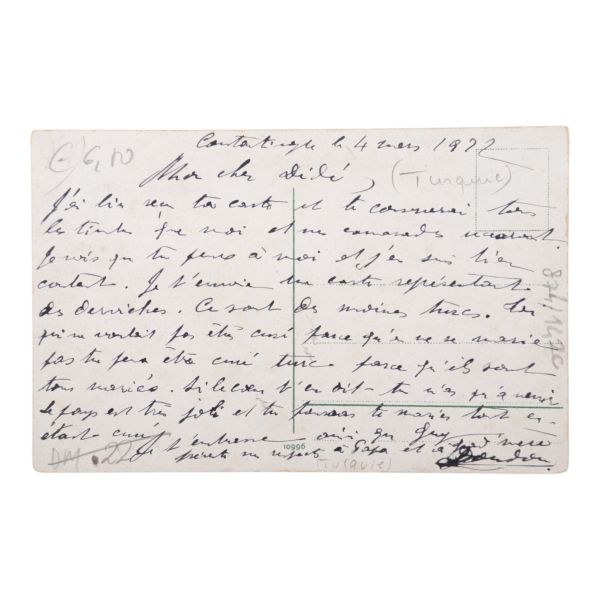 6,00
Constantinople le 4 mars 1922
Mon cher Dédé,
(Turquie)
J'ai bien reçu ta carte et te conserverai tous
les timbres que moi et mes camarades
Je vois que tu penses à moi et j'en suis bien
content. Je t'envoie une carte représentant
des derviches. Ce sont des moines turcs. Toi
qui ne voulait pas être curé parce qu'on ne se marie
pas tu peux être curé turc parce qu'ils sont
tous mariés. Si le coeur t'en dit tu n'as qu'à venir
le pays est très joli et tu pourras te marier tout en
étant curé. Je t'embrasse ainsi que Guy
présente mes respects à Papa et à
Doudou
DM. 22
10996
(Turquie)